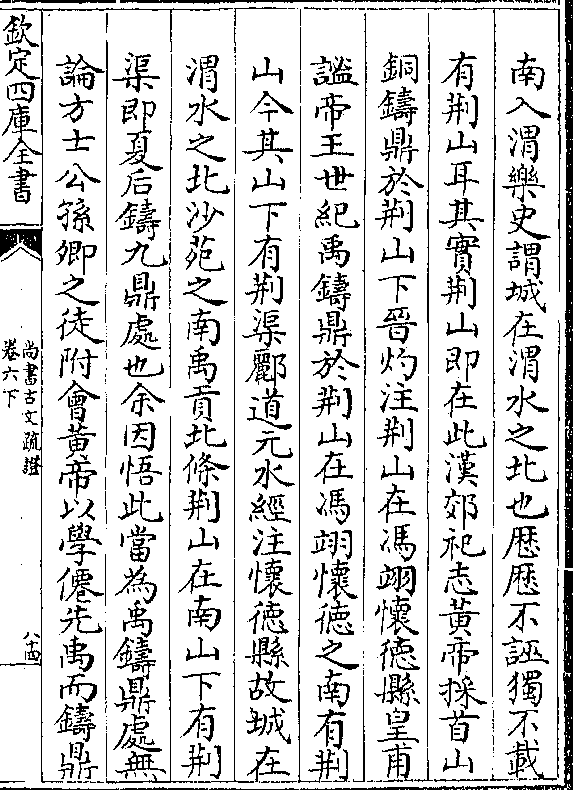 南入渭樂史謂城在渭水之北也歴歴不誣獨不載
有荆山耳其實荆山即在此漢郊祀志黄帝採首山
銅鑄鼎於荆山下晉灼注荆山在馮翊懷徳縣皇甫
謐帝王世紀禹鑄鼎於荆山在馮翊懷徳之南有荆
山今其山下有荆渠酈道元水經注懷徳縣故城在
渭水之北沙苑之南禹貢北條荆山在南山下有荆
渠即夏后鑄九鼎處也余因悟此當為禹鑄鼎處無
論方士公孫卿之徒附會黄帝以學僊先禹而鑄鼎
欽定四庫全書
尚書古文疏證
卷六下
八十四